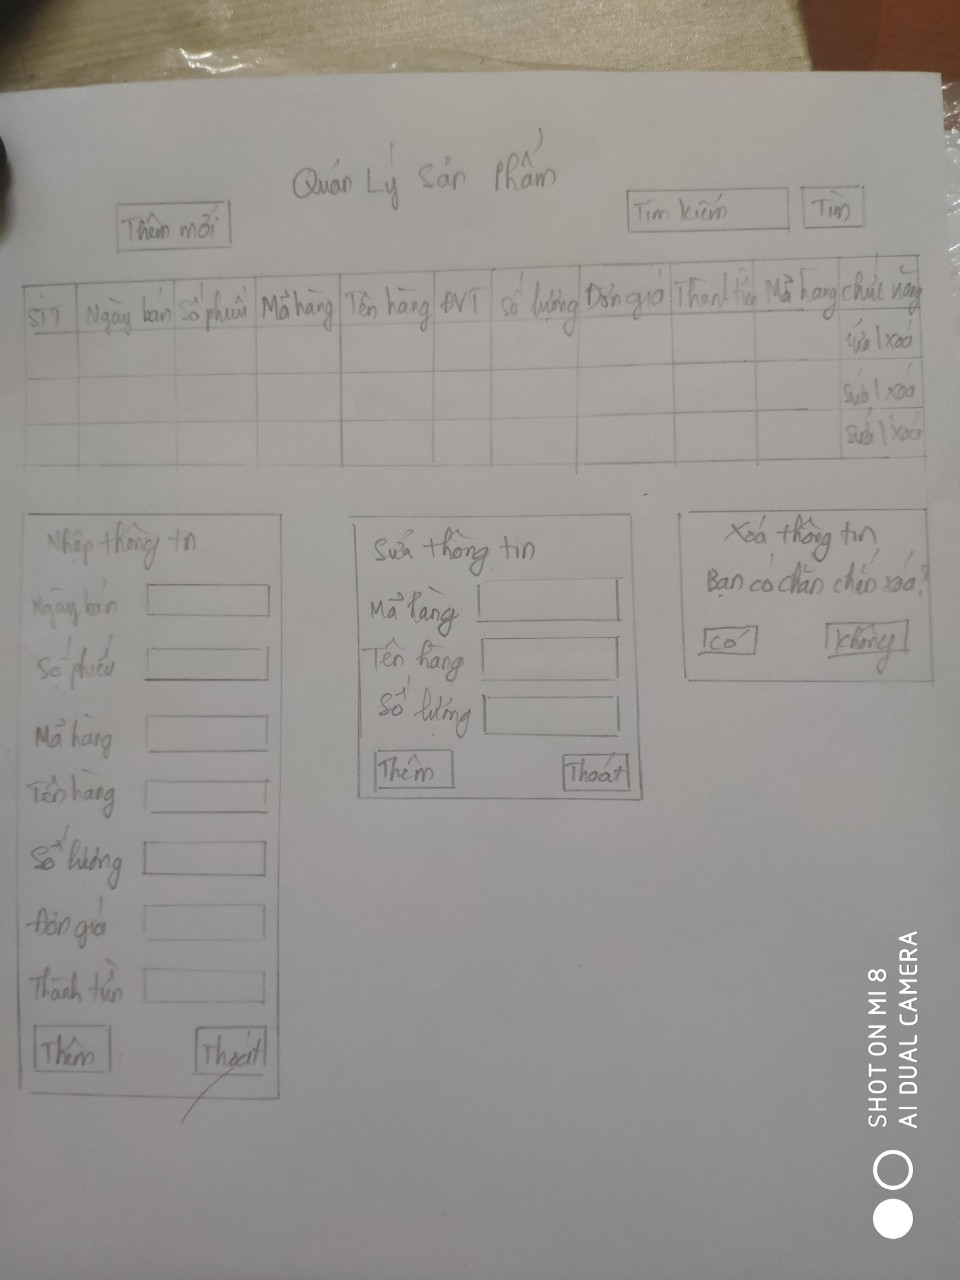 Quản Lý Sản Phẩm
Thêm mới
Tìm kiếm
Tìm
STT Ngày bán Số phiếu Mã hàng Tên hàng ĐVT Số lượng Đơn giá Thành tiền Mã hàng chức năng
sửa | xoá
sửa | xoá
sửa | xoá
Nhập thông tin
Ngày bán
Số phiếu
Mã hàng
Tên hàng
Số lượng
Đơn giá
Thành tiền
Thêm
Thoát
Sửa thông tin
Mã hàng
Tên hàng
Số lượng
Thêm
Thoát
Xoá thông tin
Bạn có chắn chắn xoá?
Có
Không
SHOT ON MI 8
AI DUAL CAMERA